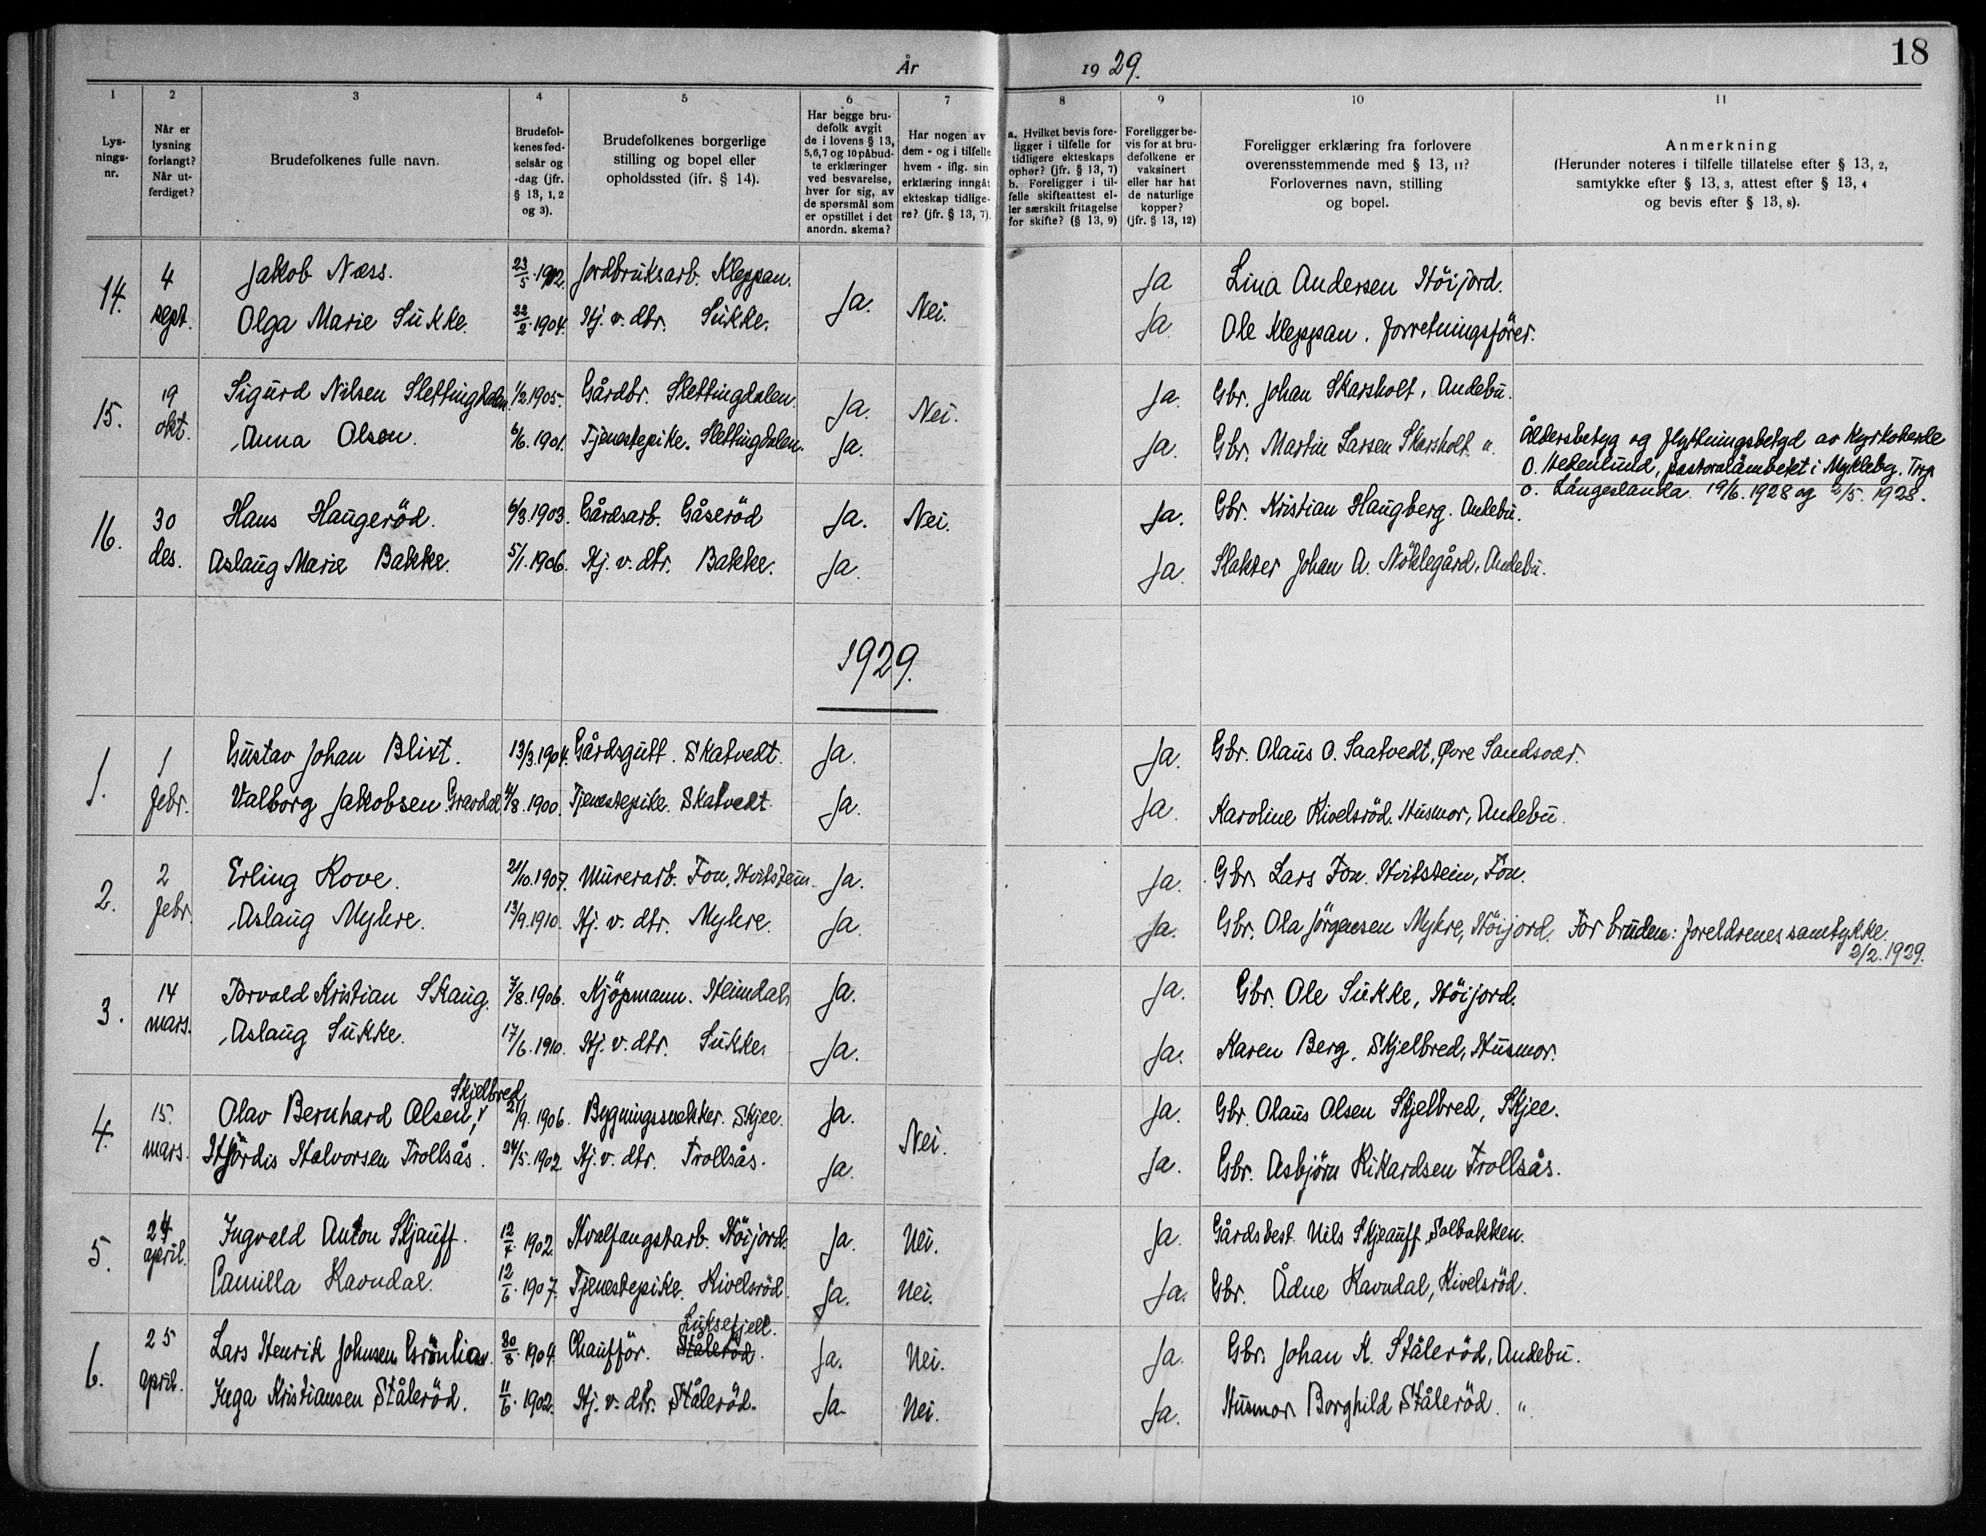 18
År 1929.
1 2 3 4 5 6 7 8 9 10 11
Lys-
nings-
nr.
Når er
lysning
forlangt?
Når ut-
ferdiget?
Brudefolkenes fulle navn.
Brudefol-
kenes fød-
selsår og
-dag (jfr.
§ 13, 1, 2
og 3).
Brudefolkenes borgerlige
stilling og bopel eller
opholdssted (ifr. § 14).
Har begge bru-
defolk avgit
de i lovens § 13,
5,6,7 og 10 påbud-
te erklæringer
ved besvarelse,
hver for sig, av
de spørsmål som
er opstillet i det
anordn. skema?
Har nogen av
dem - og i tilfelle
hvem - iflg. sin
erklæring inngåt
ekteskap tidlige-
re? (jfr. § 13, 7).
a. Hvilket bevis fore-
ligger i tilfelle for
tidligere ekteskaps
ophør? (jfr. § 13, 7)
b. Foreligger i til-
felle skifteattest el-
ler særskilt fritagelse
for skifte? (§ 13, 9)
Foreligger be-
vis for at bru-
defolkene er
vaksinert
eller har hat
de naturlige
kopper?
(jfr. § 13, 12)
Foreligger erklæring fra forlovere
overensstemmende med § 13, 11?
Forlovernes navn, stilling
og bopel.
Anmerkning
(Herunder noteres i tilfelle tillatelse efter § 13, 2,
samtykke efter § 13, 3, attest efter § 13, 4
og bevis efter § 13, 8).
14. 4 Jakob Næss. 23/5.1902. Jordbruksarb. Kleppan. Ja. Nei. Ja Lina Andersen Höijord.
sept. Olga Marie Sukke. 22/2.1904. Hj. v. dtr. Sukke. Ja. Ole Kleppan. forretningsförer.
15. 19 Sigurd Nilsen Slettingdalen 1/2.1905. Gårdbr. Slettingdalen. Ja. Nei. Ja. Gbr. Johan Skarsholt, Andebu.
okt. Anna Olson. 6/6.1901. Tjenestepike. Slettingdalen. Ja. Ja. Gbr. Martin Larsen Skarsholt. " Åldersbetyg og flyttningsbetyd av Kyrkoherde
O. Hedenlund, pastoralämbetet i Mykleby. Torp
o. Långeslanda. 19/6.1928 og 2/5.1928.
16. 30 Hans Haugeröd. 6/3.1903. Gårdsarb. Gåseröd Ja. Nei. Ja. Gbr. Kristian Haugberg. Andebu.
des. Aslaug Marie Bakke. 5/1.1906. Hj. v. dtr. Bakke. Ja. Ja. Slakter Johan A. Nöklegård, Andebu.
1929.
1. 1 Gustav Johan Blixt. 13/3.1904. Gårdsgutt. Skatvedt. Ja. Ja. Gbr. Olaus O. Saatvedt, Øvre Sandsvær.
febr. Valborg Jakobsen Gravdal 4/8.1900. Tjenestepike. Skatvedt. Ja. Ja. Karoline Kivelsröd. Husmor, Andebu.
2. 2 Erling Rove. 21/10.1907. Murerarb. Fon, Hvitstein. Ja. Ja. Gbr. Lars Fon. Hvitstein, Fon.
febr. Aslaug Myhre. 13/9.1910. Hj. v. dtr. Myhre. Ja. Ja. Gbr. Ola Jörgensen Myhre, Höijord. For bruden: foreldrenes samtykke.
2/2.1929.
3. 14 Torvald Kristian Skaug. 7/8.1906. Kjöpmann. Heimdal. Ja. Ja. Gbr. Ole Sukke, Höijord.
mars. Aslaug Sukke. 17/6.1910. Hj. v. dtr. Sukke. Ja. Ja. Karen Berg. Skjelbred, Husmor.
Skjelbred
4. 15. Olav Bernhard Olsen, 21/9.1906. Bygningssnekker. Skjee. Ja. Nei. Ja. Gbr. Olaus Olsen Skjelbred, Skjee.
mars. Hjördis Halvorsen Trollsås. 24/5.1902 Hj. v. dtr. Trollsås. Ja. Ja. Gbr. Asbjörn Rikardsen Trollsås.
5. 24 Ingvald Anton Skjauff. 12/7.1902. Hvalfangstarb. Höijord. Ja. Nei. Ja. Gårdsbest. Nils Skjeauff, Solbakken.
april. Camilla Ravndal. 12/6.1907. Tjenestepike. Kivelsröd. Ja. Nei. Ja. Gbr. Ådne Ravndal, Kivelsröd.
Luksefjell.
6. 25 Lars Henrik Johnsen Grönlia. 30/8.1904. Chaufför. Ståleröd. Ja. Nei. Ja. Gbr. Johan K. Ståleröd, Andebu.
april. Inga Kristiansen Ståleröd. 11/6.1902. Hj. v. dtr. Ståleröd. Ja. Nei. Ja. Husmor Borghild Ståleröd. "